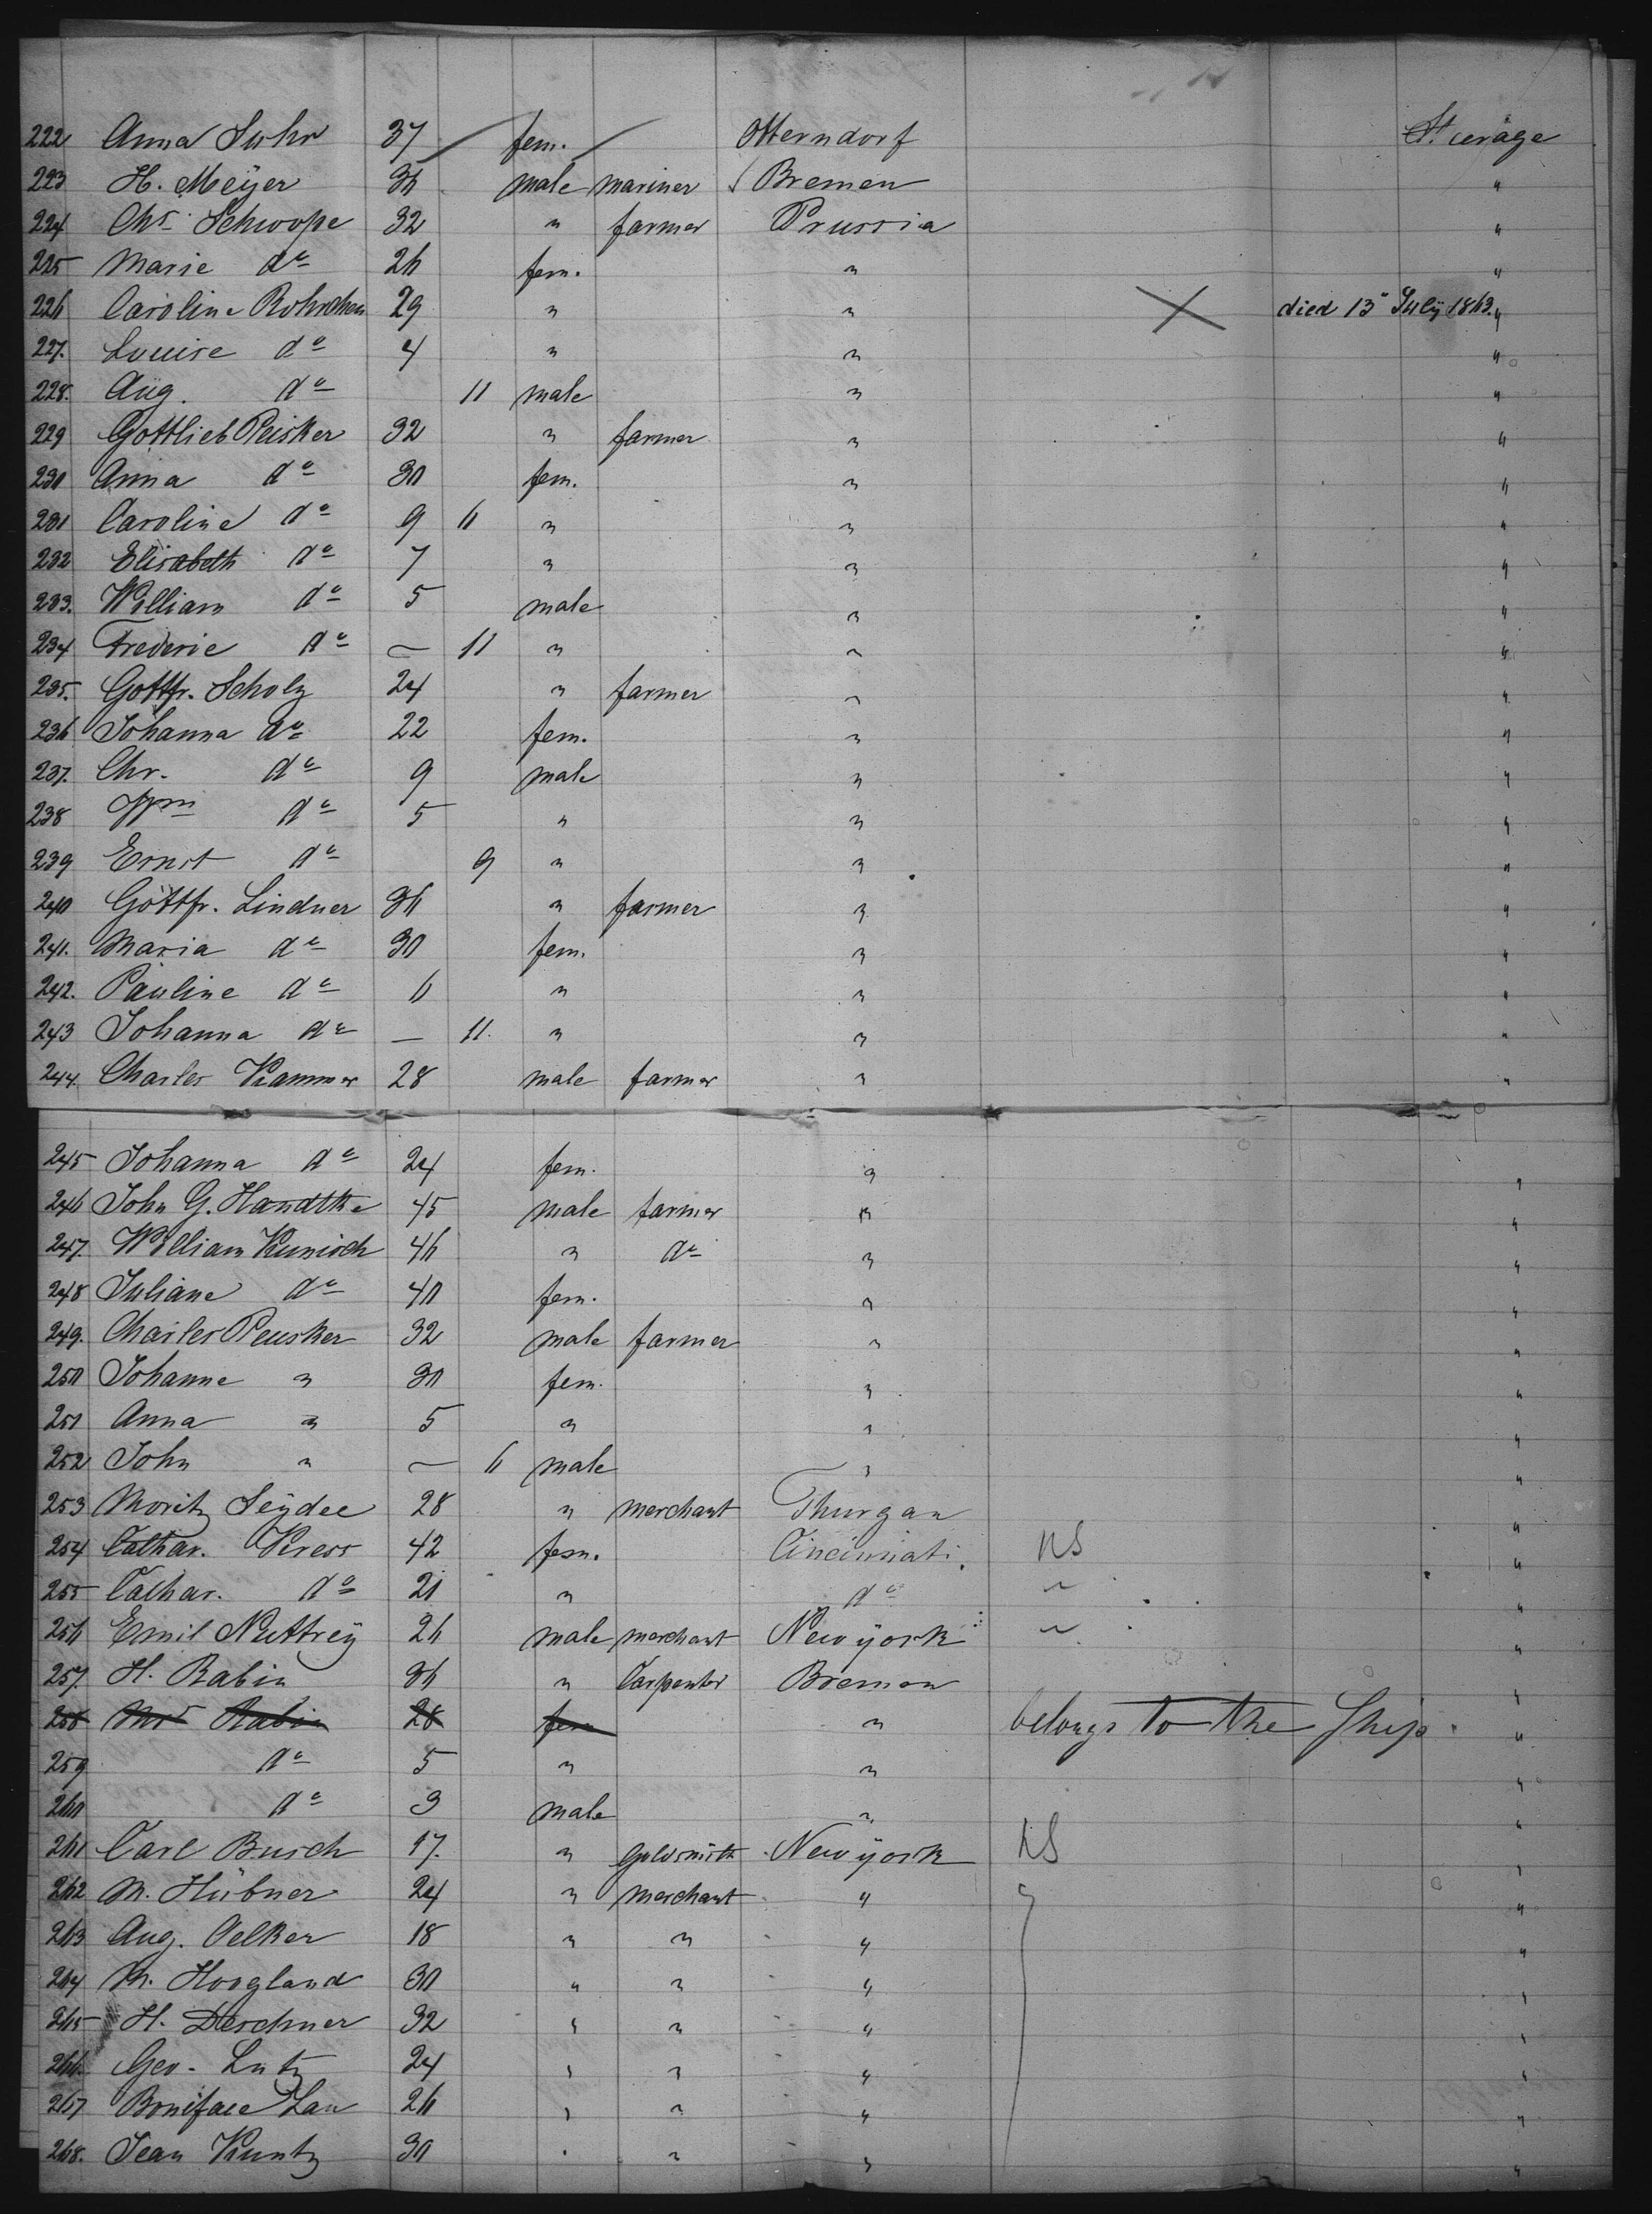 222 Anna Suhr 37 fem. Otterndorf Steeräge
223 H. Meÿer 36 male mariner Bremen "
224 Chs. Schwope 32 " farmer Prussia "
225 Marie do 26 fem. " "
226 Caroline Rohrdhen 29 " " died 13" Julÿ 1863. "
227. Louise do 4 " " "
228. Aug. do 11 male " "
229 Gottlieb Peisker 32 " farmer " "
230 Anna do 30 fem. " "
231 Caroline do 9 6 " " "
232 Elisabeth do 7 " " "
233. William do 5 male " "
234 Frederic do — 11 " " "
235. Gottfr. Scholz 24 " farmer " "
236 Johanna do 22 fem. " "
237. Chr. do 9 male " "
238 Wm do 5 " " "
239 Ernst do 9 " " "
240 Gottfr. Lindner 36 " farmer " "
241. Maria do 30 fem. " "
242. Pauline do 6 " " "
243 Johanna do — 11. " " "
244. Charles Krammer 28 male farmer " "
245 Johanna do 24 fem. " "
246 John G. Handtke 45 male farmer " "
247. William Kunisch 46 " do " "
248 Juliane do 40 fem. " "
249. Charles Peusker 32 male farmer " "
250 Johanne " 30 fem. " "
251 Anna " 5 " " "
252 John " — 6 male " "
253 Moritz Seÿdee 28 " merchant Thurgau "
254 Cathar. Kress 42 fem. Cincinnati. NS "
255 Cathar. do 21 " do " "
256 Emil Nuttreÿ 26 male merchant New ÿork " "
257. H. Rabin 36 " Carpenter Bremen "
258 Mrs Rabin 28 fem " belongs to the Ship. "
259 do 5 " " "
260 do 3 male " "
261 Carl Busch 17. " Goldsmith New ÿork NS "
262 M. Hübner 24 " merchant " "
263 Aug. Oelker 18 " " " "
264 M. Hoogland 30 " " " "
265 H. Deschner 32 " " " "
266. Geo. Lutz 24 " " " "
267 Boniface Lau 26 " " " "
268. Jean Kuntz 30 " " " "